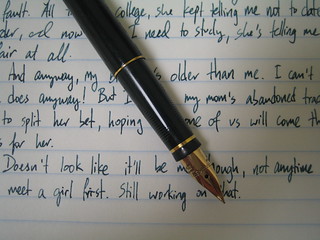 fault. All college, she kept telling me not to date
and now I need to study, she's telling me
fair at all.
And anyway, my older than me. I can't
does anyway! But I my mom's abandoned
to split her bet, hoping one of us will come
s for her.
Doesn't look like it'll be me though, not anytime
meet a girl first. Still working on that.